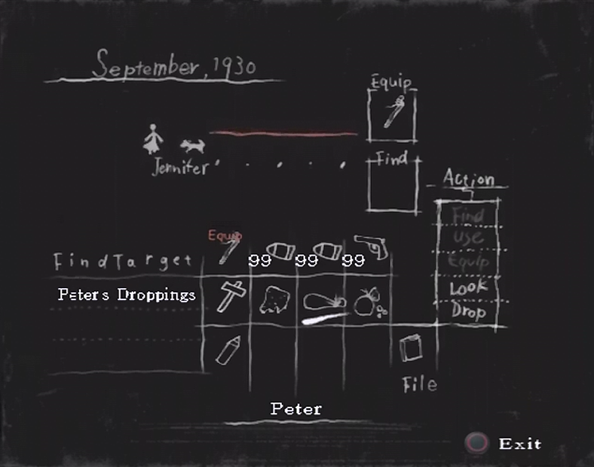 September, 1930
Equip
Jennifer
Find
Action
Find
Use
Equip
Look
Drop
Equip
99 99 99
Find Target
Peter's Droppings
File
Peter
Exit